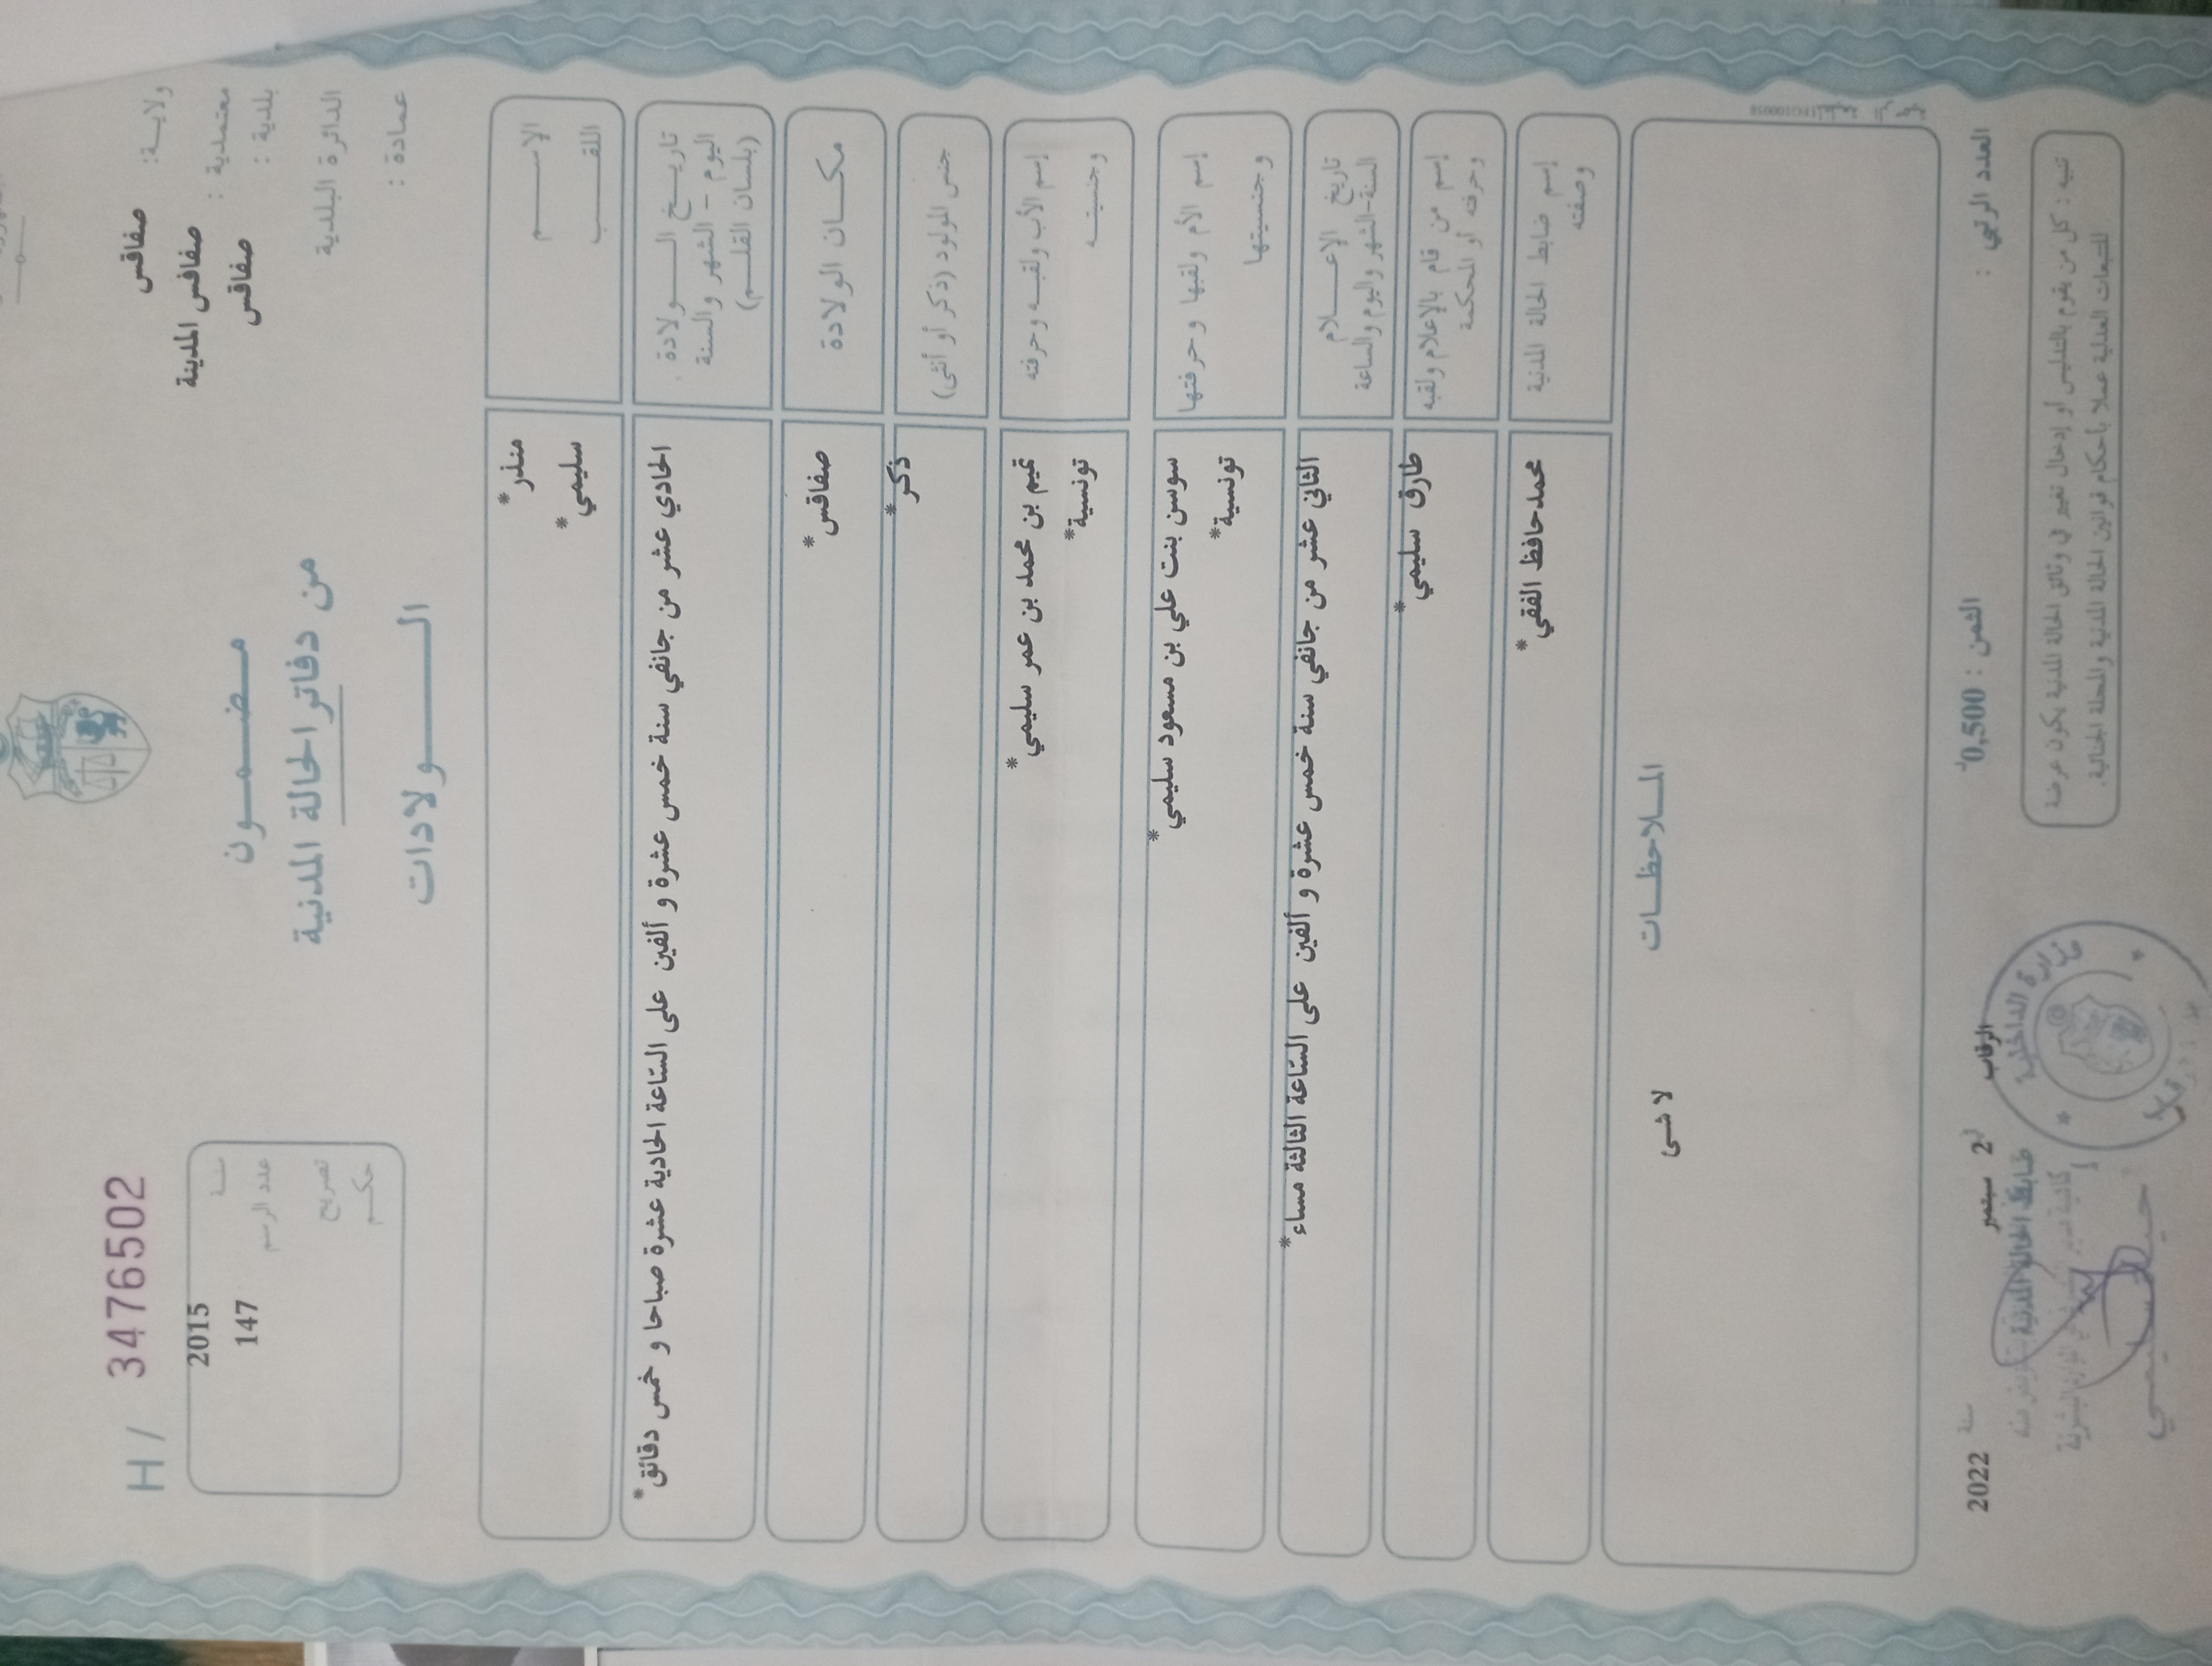 ولايـــة: صفاقس
معتمدية : صفاقس المدينة
بلدية : صفاقس
الدائرة البلدية
عمادة :
مـــضـــمـــون
من دفاتر الحالة المدنية
الــــــولادات
H / 3476502
سنــة 2015
عدد الرسم 147
تصريح
حكــم
الإســـــــم
منذر*
اللقـــــــب
سليمي*
تاريـــخ الــــــولادة
اليوم - الشهر والسنة
(بلسان القلـــم)
الحادي عشر من جانفي سنة خمس عشرة و ألفين على السّاعة الحادية عشرة صباحا و خمس دقائق*
مكـــان الولادة
صفاقس*
جنس المولود (ذكر أو أنثى)
ذكر*
إسم الأب ولقبـــه وحرفته
تميم بن محمد بن عمر سليمي*
وجنسيتـــه
تونسية*
إسم الأم ولقبها وحرفتها
سوسن بنت علي بن مسعود سليمي*
وجنسيتها
تونسية*
تاريخ الإعــــلام
السنة-الشهر واليوم والساعة
الثاني عشر من جانفي سنة خمس عشرة و ألفين على السّاعة الثالثة مساء*
إسم من قام بالإعلام ولقبه
وحرفته أو المحكمة
طارق سليمي*
إسم ضابط الحالة المدنية
وصفته
محمدحافظ الفقي*
المــلاحظـــات
لا شى
العدد الرتبي :
الثمن : 0,500
الرقاب
2 سبتمبر
سنة 2022
ضابط الحالة المدنية
وزارة الداخلية
تنبيه : كل من يقوم بالتدليس أو إدخال تغيير في وثائق الحالة المدنية يكون عرضة
للتتبعات العدلية عملا بأحكام قوانين الحالة المدنية والمجلة الجنائية.